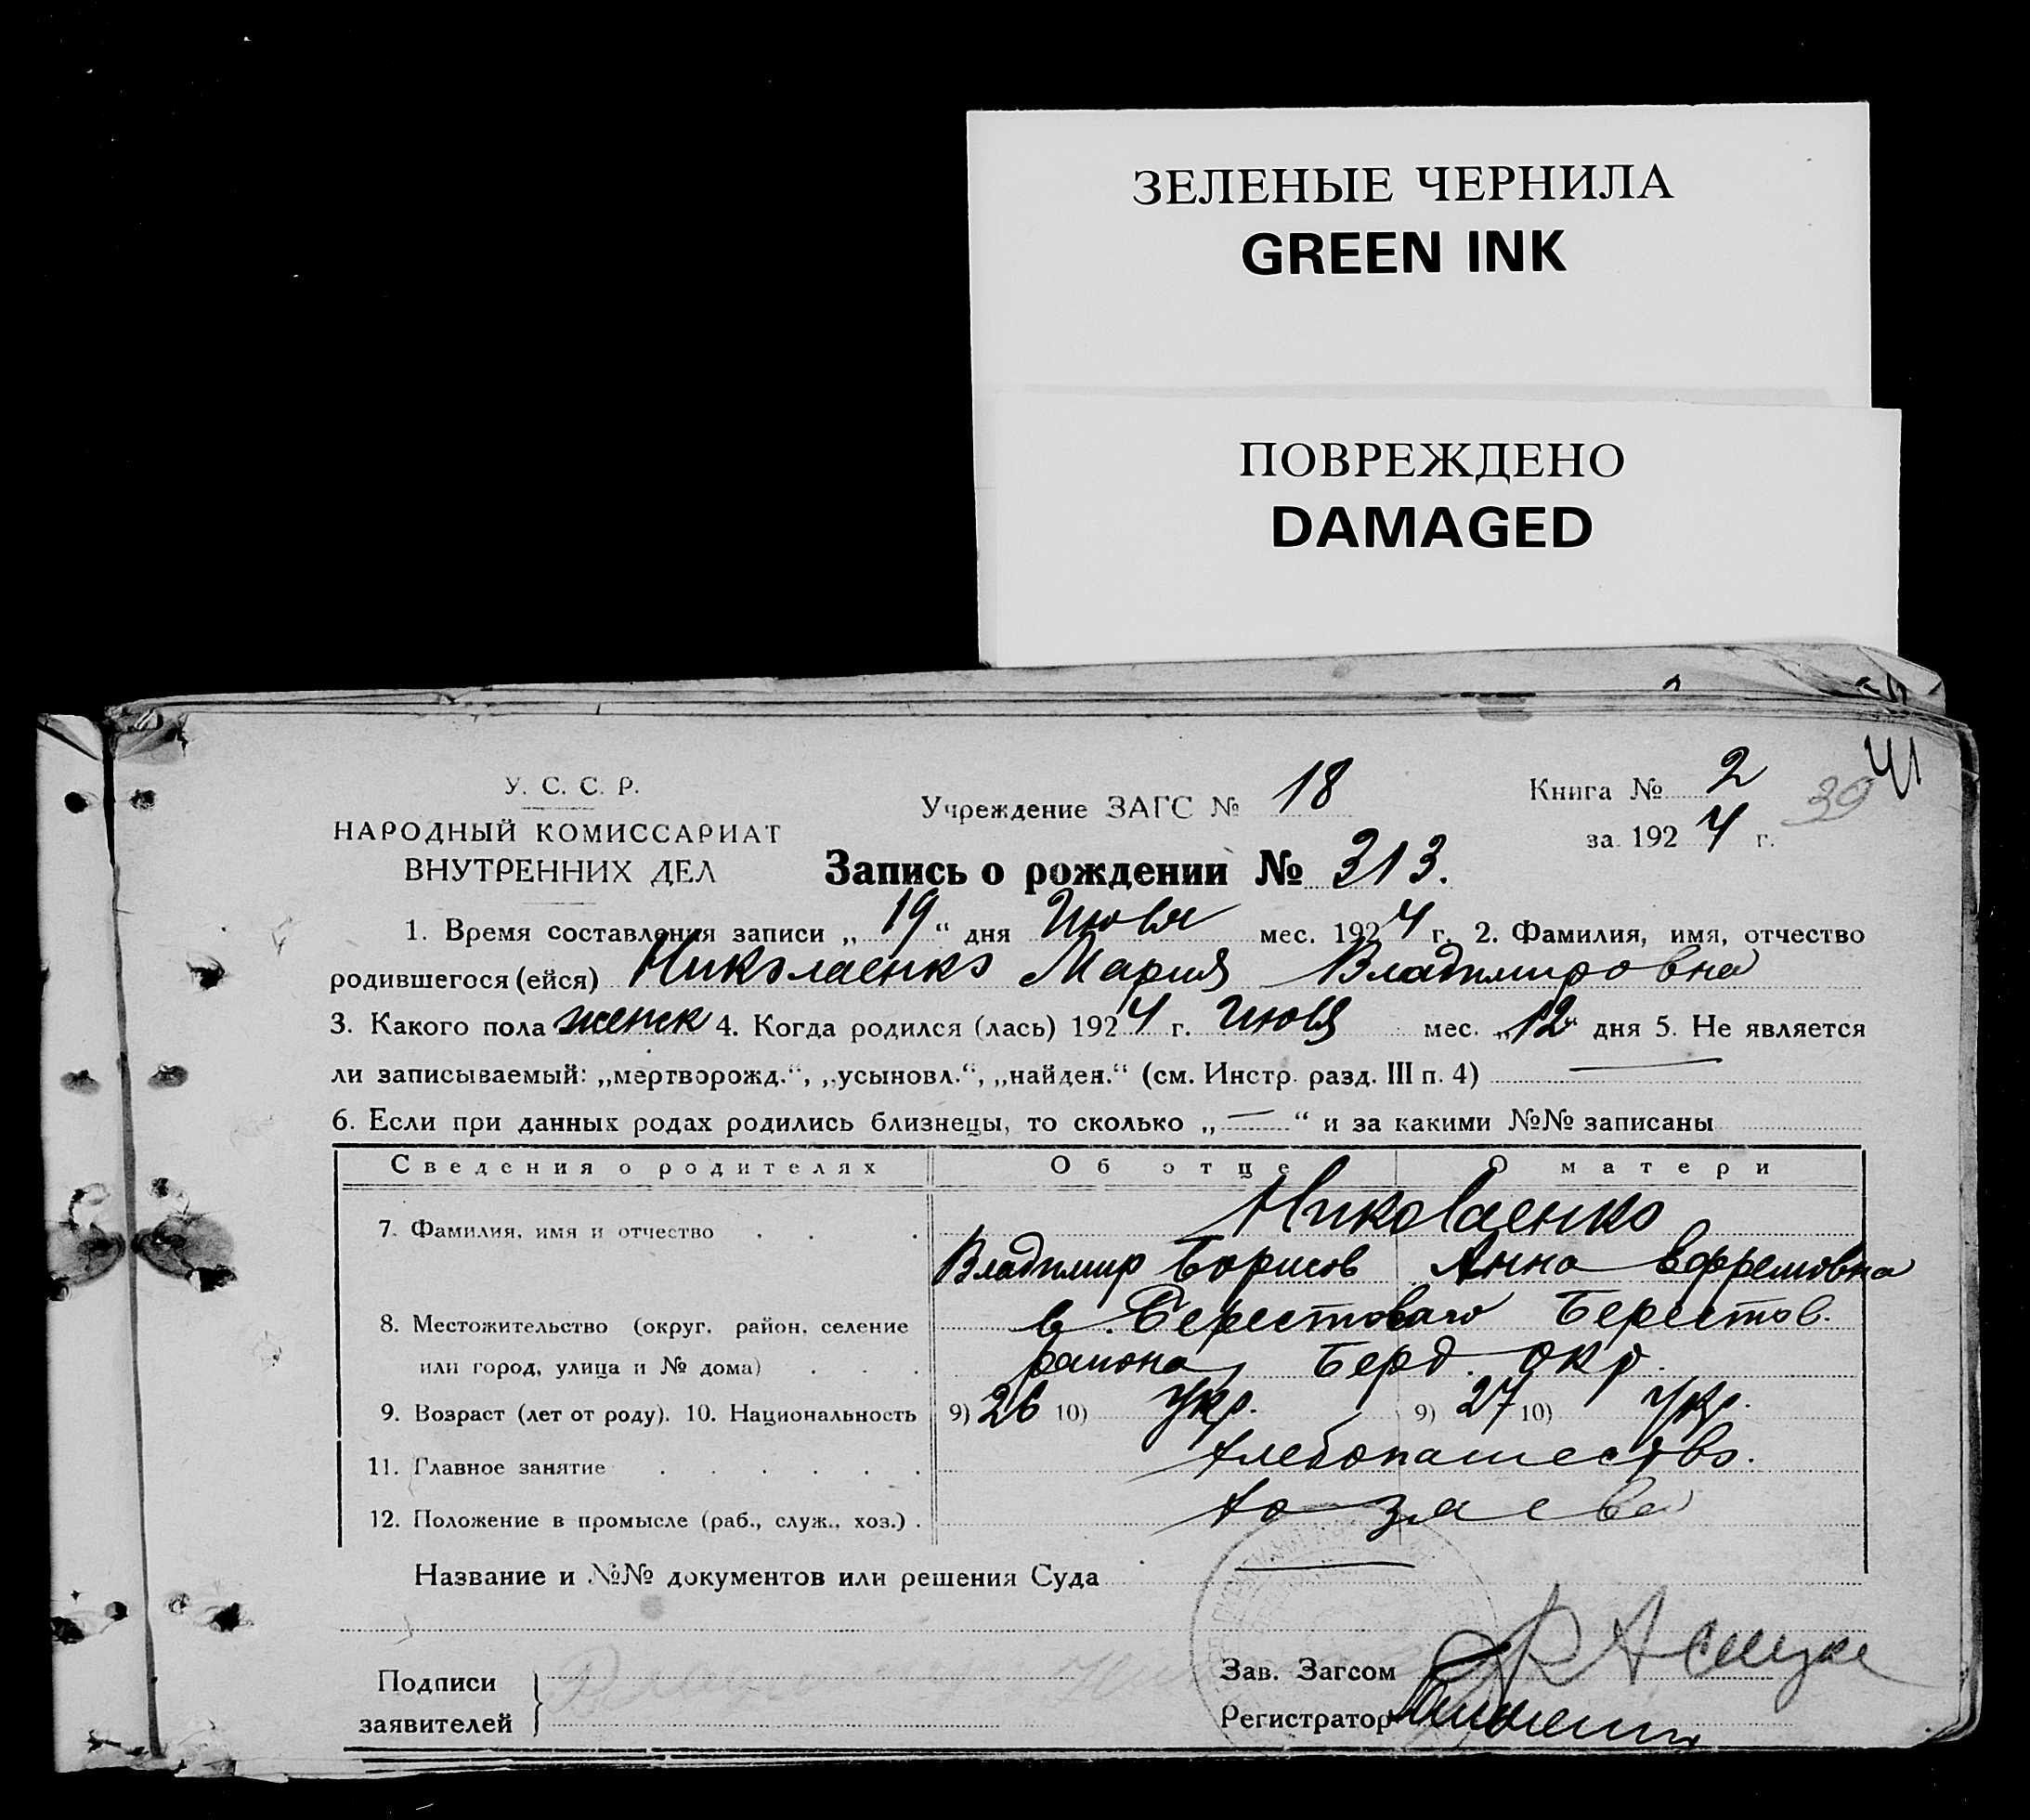 ЗЕЛЕНЫЕ ЧЕРНИЛА
GREEN INK
ПОВРЕЖДЕНО
DAMAGED
41
39
У. С. С. Р.
НАРОДНЫЙ КОМИССАРИАТ
ВНУТРЕННИХ ДЕЛ
Учреждение ЗАГС № 18
Книга № 2
за 1924 г.
Запись о рождении № 313.
1. Время составления записи „19“ дня Июля мес. 1924 г. 2. Фамилия, имя, отчество
родившегося (ейся) Николаенко Мария Владимировна
3. Какого пола женск 4. Когда родился (лась) 1924 г. Июля мес. „12“ дня 5. Не является
ли записываемый: „мертворожд.“, „усыновл.“, „найден.“ (см. Инстр. разд. III п. 4) —
6. Если при данных родах родились близнецы, то сколько „—“ и за какими №№ записаны
Сведения о родителях Об отце О матери
Николаенко
7. Фамилия, имя и отчество
Владимир Борисов Анна Ефремовна
8. Местожительство (округ, район, селение Берестоваго Берестов.
или город, улица и № дома) района Берд. окр.
9. Возраст (лет от роду). 10. Национальность 9) 26 10) Укр. 9) 27 10) Укр.
11. Главное занятие Хлебопашество.
12. Положение в промысле (раб., служ., хоз.) . хозяева
Название и №№ документов или решения Суда —
Подписи
заявителей
Зав. Загсом
Регистратор